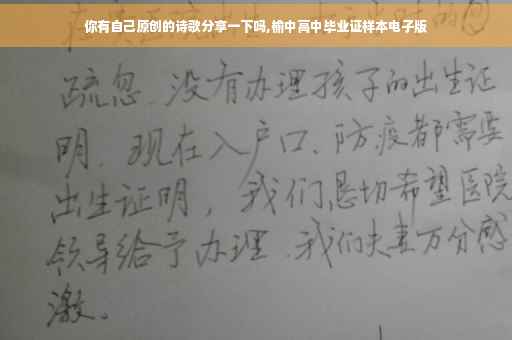 你有自己原创的诗歌分享一下吗,榆中高中毕业证样本电子版
疏忽、没有办理孩子的出生证
明、现在入户口、防疫都需要
出生证明，我们恳切希望医院
领导给予办理、我们夫妻万分感
激。